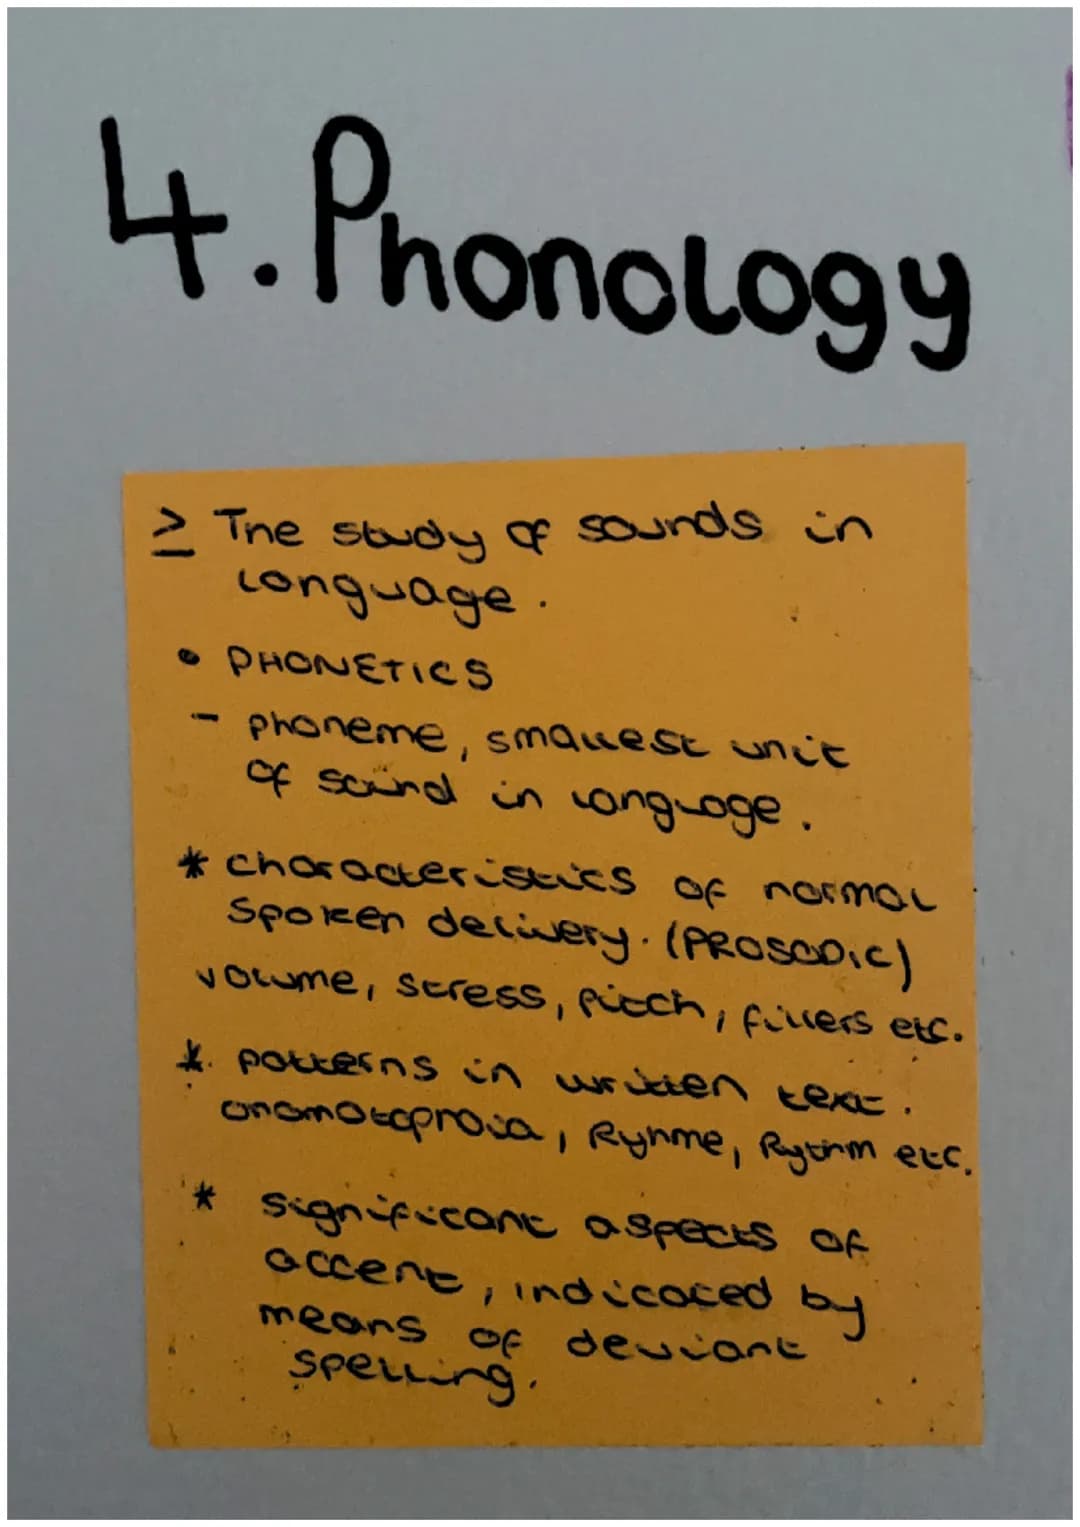 4. Phonology
> The study of sounds in
language.
• PHONETICS
- phoneme, smallest unit
of sound in language.
* characteristics of normal
spoken delivery. (PROSODIC)
volume, stress, pitch, fillers etc.
* patterns in written text.
onomotoproia, Ryhme, Rythm etc.
* significant aspects of
accent, indicated by
means of deviant
spelling.